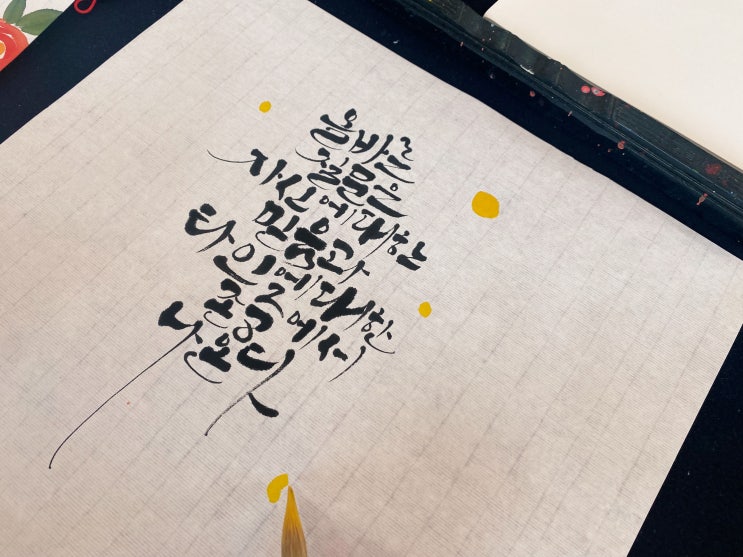 올바른
질문은
자신에 대한
믿음과
타인에 대한
존중에서
나온다